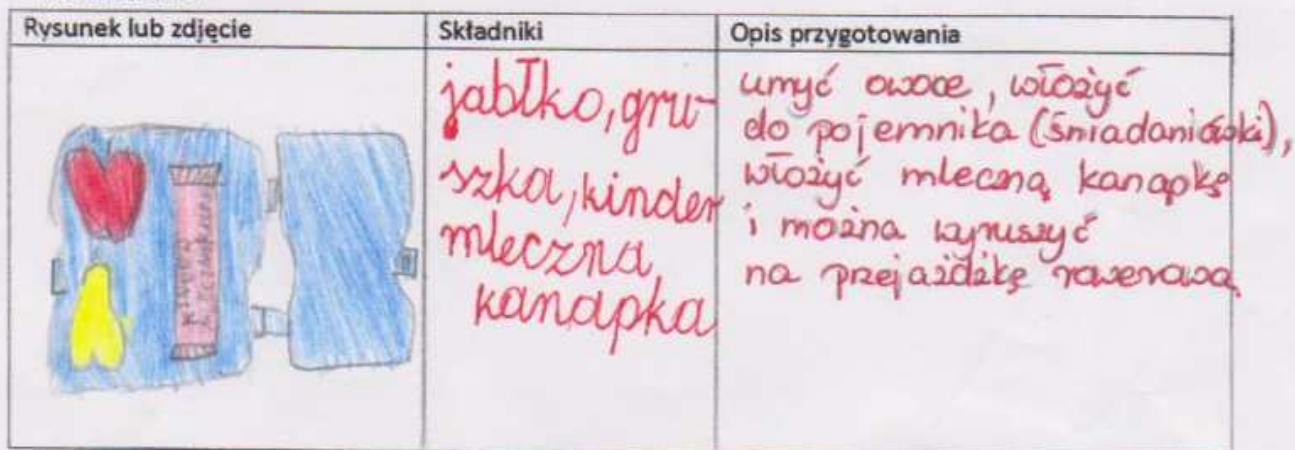 Rysunek lub zdjęcie
Składniki
Opis przygotowania
jabłko, gru-
szka, kinder
mleczna
kanapka
umyć owoce, włożyć
do pojemnika (śniadaniówki),
włożyć mleczną kanapkę
i można wyruszyć
na przejażdżkę rowerową